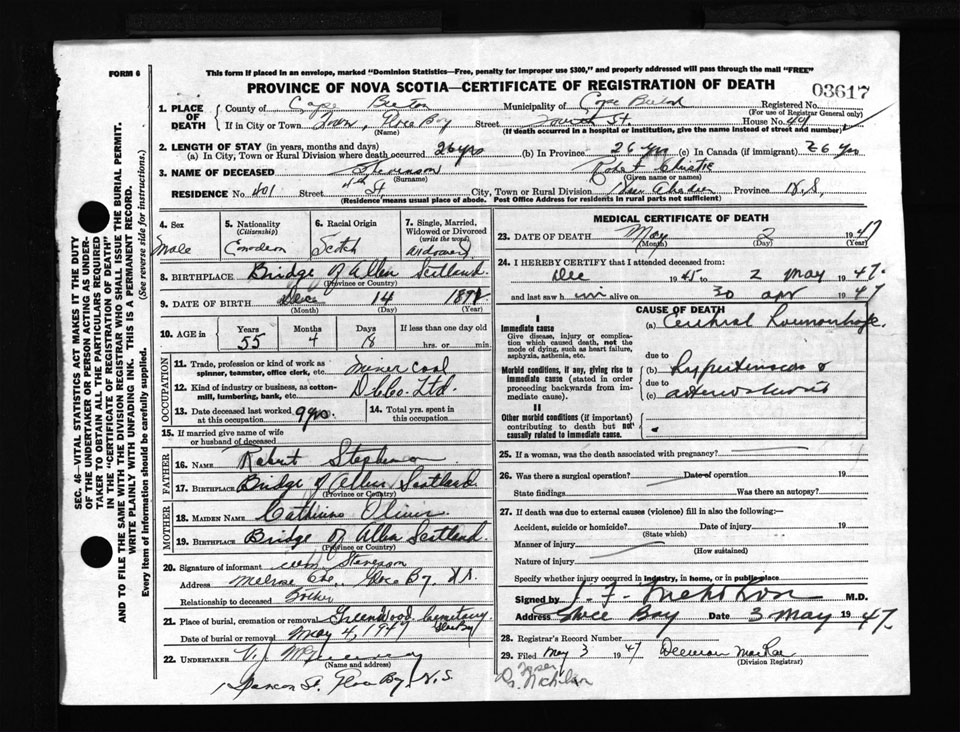 FORM 6
This form if placed in an envelope, marked "Dominion Statistics—Free, penalty for improper use $300," and properly addressed will pass through the mail "FREE"
PROVINCE OF NOVA SCOTIA—CERTIFICATE OF REGISTRATION OF DEATH
03617
1. PLACE OF DEATH County of Cape Breton Municipality of Cape Breton Registered No.
(For use of Registrar General only)
If in City or Town Town, Glace Bay Street St. House No. 44
(Name) (If death occurred in a hospital or institution, give the name instead of street and number)
2. LENGTH OF STAY (in years, months and days)
(a) In City, Town or Rural Division where death occurred 26 yrs (b) In Province 26 yrs (c) In Canada (if immigrant) 26 yrs
3. NAME OF DECEASED Stevenson Robert Christie
(Surname) (Given name or names)
RESIDENCE No. 401 Street 4th St City, Town or Rural Division New Aberdeen Province N.S.
(Residence means usual place of abode. Post Office Address for residents in rural parts not sufficient)
4. Sex Male
5. Nationality (Citizenship) Canadian
6. Racial Origin Scotch
7. Single, Married, Widowed or Divorced (write the word) Widowed
8. BIRTHPLACE Bridge of Allen Scotland.
(Province or Country)
9. DATE OF BIRTH Dec 14 189
(Month) (Day) (Year)
10. AGE in Years 55 Months 4 Days 18 If less than one day old hrs. or min.
OCCUPATION
11. Trade, profession or kind of work as spinner, teamster, office clerk, etc. miner coal
12. Kind of industry or business, as cotton-mill, lumbering, bank, etc. D.C.Co. Ltd.
13. Date deceased last worked at this occupation 9 yrs
14. Total yrs. spent in this occupation
15. If married give name of wife or husband of deceased
FATHER
16. NAME Robert Stephenson
17. BIRTHPLACE Bridge of Allen Scotland
(Province or Country)
MOTHER
18. MAIDEN NAME Cathirine Oliver
19. BIRTHPLACE Bridge of Allen Scotland.
(Province or Country)
20. Signature of informant Wm. Stevenson
Address Melrose Ave., Glace By, N.S.
Relationship to deceased Brother
21. Place of burial, cremation or removal Greenwood Cemetery Glace By
Date of burial or removal May 4, 1947
22. UNDERTAKER V. J.
(Name and address)
St. Glace By, N.S
MEDICAL CERTIFICATE OF DEATH
23. DATE OF DEATH May 2 1947
(Month) (Day) (Year)
24. I HEREBY CERTIFY that I attended deceased from:
Dec 1945 to 2 May 1947.
and last saw him alive on 30 apr 1947
CAUSE OF DEATH
I
Immediate cause
Give disease, injury or complication which caused death, not the mode of dying, such as heart failure, asphyxia, asthenia, etc.
(a) Cerebral Hemorrhage
due to
Morbid conditions, if any, giving rise to immediate cause (stated in order proceeding backwards from immediate cause)
(b) Hypertension &
due to
(c) arteriosclerosis
II
Other morbid conditions (if important) contributing to death but not causally related to immediate cause.
25. If a woman, was the death associated with pregnancy?
26. Was there a surgical operation? Date of operation 19
State findings Was there an autopsy?
27. If death was due to external causes (violence) fill in also the following:—
Accident, suicide or homicide? Date of injury 19
(State which)
Manner of injury
(How sustained)
Nature of injury
Specify whether injury occurred in industry, in home, or in public place
Signed by M.D.
Address Glace Bay Date 3 May 1947.
28. Registrar's Record Number
29. Filed May 3 1947 MacRae
(Division Registrar)
SEC. 46—VITAL STATISTICS ACT MAKES IT THE DUTY OF THE UNDERTAKER OR PERSON ACTING AS UNDERTAKER TO OBTAIN ALL THE PARTICULARS REQUIRED IN THE "CERTIFICATE OF REGISTRATION OF DEATH" AND TO FILE THE SAME WITH THE DIVISION REGISTRAR WHO SHALL ISSUE THE BURIAL PERMIT.
WRITE PLAINLY WITH UNFADING INK. THIS IS A PERMANENT RECORD.
Every item of Information should be carefully supplied. (See reverse side for instructions.)